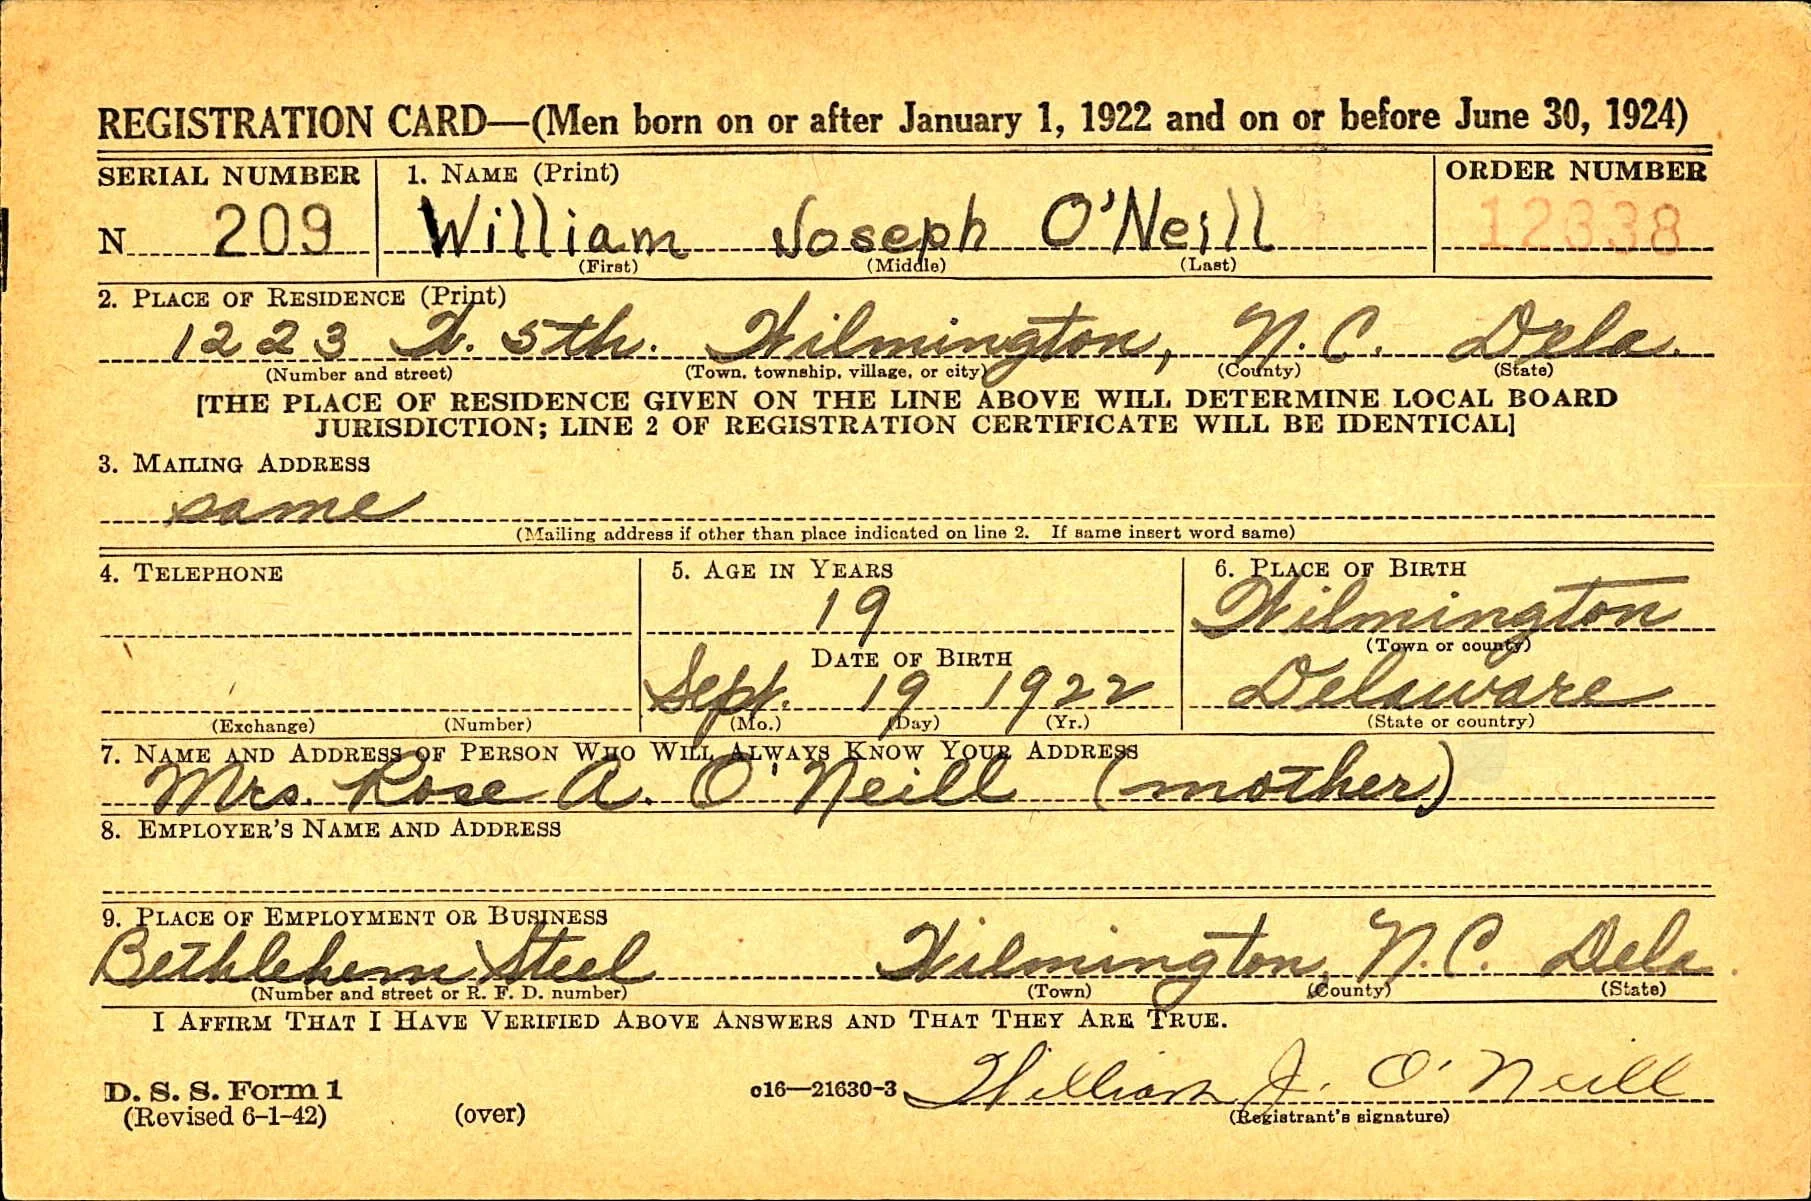 REGISTRATION CARD—(Men born on or after January 1, 1922 and on or before June 30, 1924)
SERIAL NUMBER 1. NAME (Print) ORDER NUMBER
N 209 William Joseph O'Neill 12338
(First) (Middle) (Last)
2. PLACE OF RESIDENCE (Print)
1223 W. 5th. Wilmington, N.C. Dela.
(Number and street) (Town, township, village, or city) (County) (State)
[THE PLACE OF RESIDENCE GIVEN ON THE LINE ABOVE WILL DETERMINE LOCAL BOARD
JURISDICTION; LINE 2 OF REGISTRATION CERTIFICATE WILL BE IDENTICAL]
3. MAILING ADDRESS
same
(Mailing address if other than place indicated on line 2. If same insert word same)
4. TELEPHONE 5. AGE IN YEARS 6. PLACE OF BIRTH
19 Wilmington
(Town or county)
DATE OF BIRTH
Sept. 19 1922 Delaware
(Exchange) (Number) (Mo.) (Day) (Yr.) (State or country)
7. NAME AND ADDRESS OF PERSON WHO WILL ALWAYS KNOW YOUR ADDRESS
Mrs. Rose A. O'Neill (mother)
8. EMPLOYER'S NAME AND ADDRESS
9. PLACE OF EMPLOYMENT OR BUSINESS
Bethlehem Steel Wilmington, N.C. Dela.
(Number and street or R. F. D. number) (Town) (County) (State)
I AFFIRM THAT I HAVE VERIFIED ABOVE ANSWERS AND THAT THEY ARE TRUE.
D. S. S. Form 1 c16—21630-3 William J. O'Neill
(Revised 6-1-42) (over) (Registrant's signature)